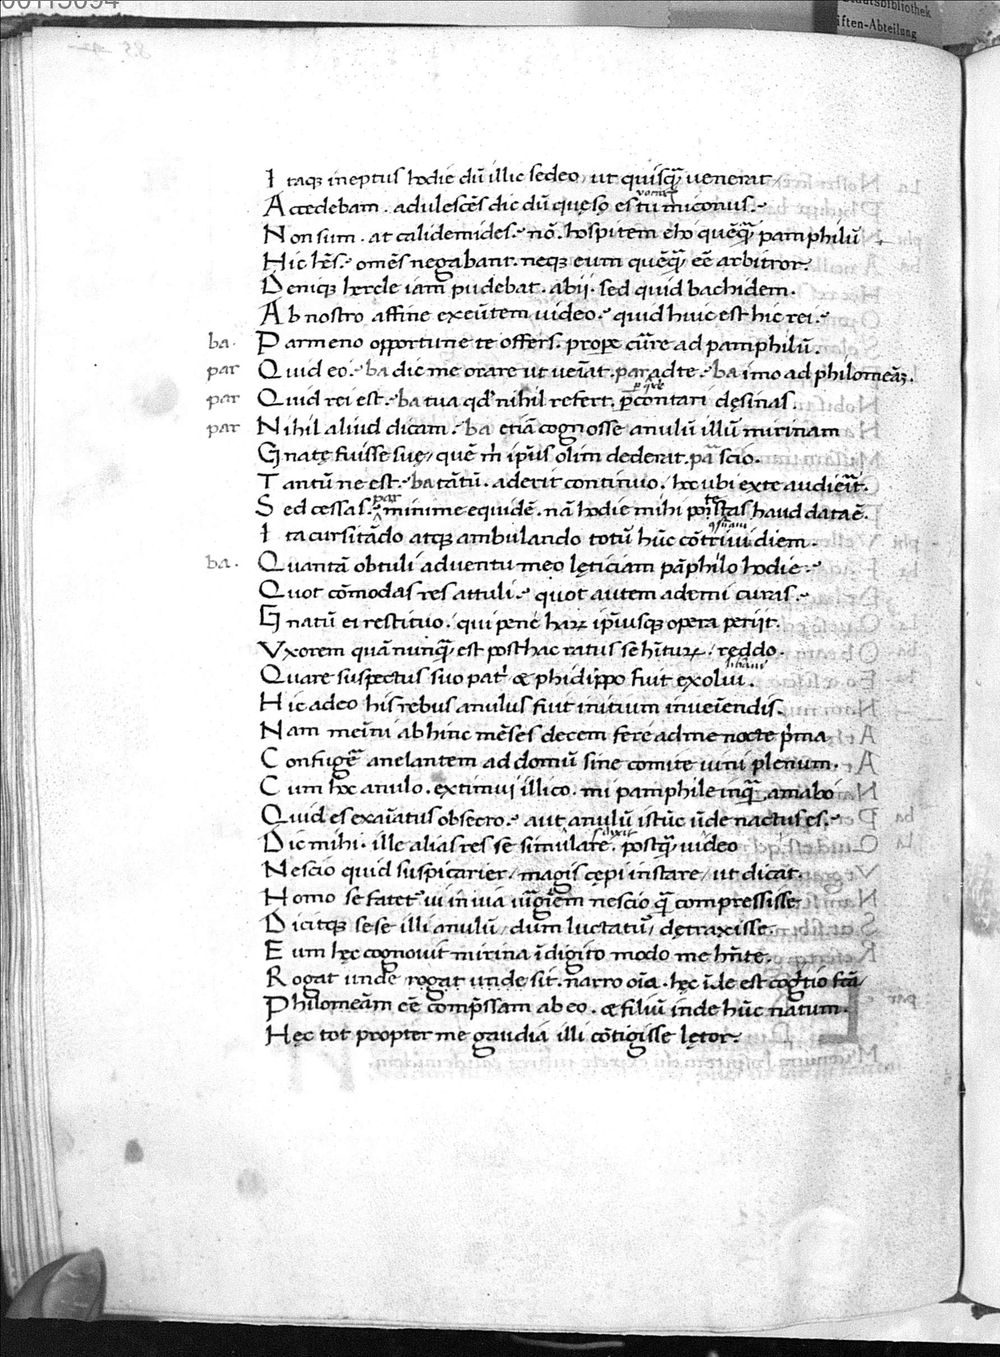 Itaq; ineptus hodie dũ illic sedeo ut quisq̃ uenerat
Accedebam . adulescẽs dic dũ quęso es tu miconius .
Non sum . at calidemides . nõ . hospitem eho quẽq̃ pamphilũ
Hic hẽs . omẽs negabant . neq; eum quẽq̃ eẽ arbitror .
Deniq; hercle iam pudebat . abii . sed quid bachidem .
Ab nostro affine exeũtem uideo . quid huic est hic rei .
ba . Parmeno opportune te offers . prope cũre ad pamphilũ .
par Quid eo . ba dic me orare ut ueĩat . par ad te . ba imo ad philomenã .
par Quid rei est . ba tua qd̃ nihil refert . ꝑcontari dęsinas .
par Nihil aliud dicam . ba etiã cognosse anulũ illũ mirinam
Gnatę fuisse suę / quẽ m̃ ip̃us olim dederat . par scio .
Tantũ ne est . ba tãtũ . aderit continuo . hoc ubi ex te audieĩt .
Sed cessas . par minime equidẽ . nã hodie mihi potestas haud data ẽ .
Ita cursitãdo atq; ambulando totũ hũc cõtriui diem .
ba . Quantã obtuli aduentu meo lęticiam pãphilo hodie .
Quot cõmodas res attuli . quot autem ademi curas .
Gnatũ ei restituo . qui penẽ harꝝ ip̃iusq; opera periit .
Vxorem quã nunq̃ est posthac ratus se hĩturꝝ / reddo .
Quare suspectus suo patr̃ & phidippo fuit exolui .
Hic adeo his rebus anulus fuit initium inueĩendis .
Nam meĩni abhinc mẽses decem ferẽ ad me nocte p̃ma
Confugẽ anelantem ad domũ sine comite uini plenum .
Cum hoc anulo . extimui illico . mi pamphile inq̃ amabo
Quid es exaĩatus obsecro . aut anulũ istũc ũde nactus es .
Dic mihi . ille alias res se simulare . postq̃ uideo
Nescio quid suspicarier / magis cępi instare / ut dicat .
Homo se fatet᷑ ui in uia uĩgĩem nescio q̃ compressisse
Dicitq; sese illi anulũ / dum luctatũ / dętraxisse .
Eum hęc cognouit mirina ĩ digito modo me hñte .
Rogat unde rogat unde sit . narro oĩa . hęc ĩde est cogĩtio fcã /
Philomenãm eẽ comp̃ssam ab eo . & filiũ inde hũc natum .
Hęc tot propter me gaudia illi cõtigisse lętor .